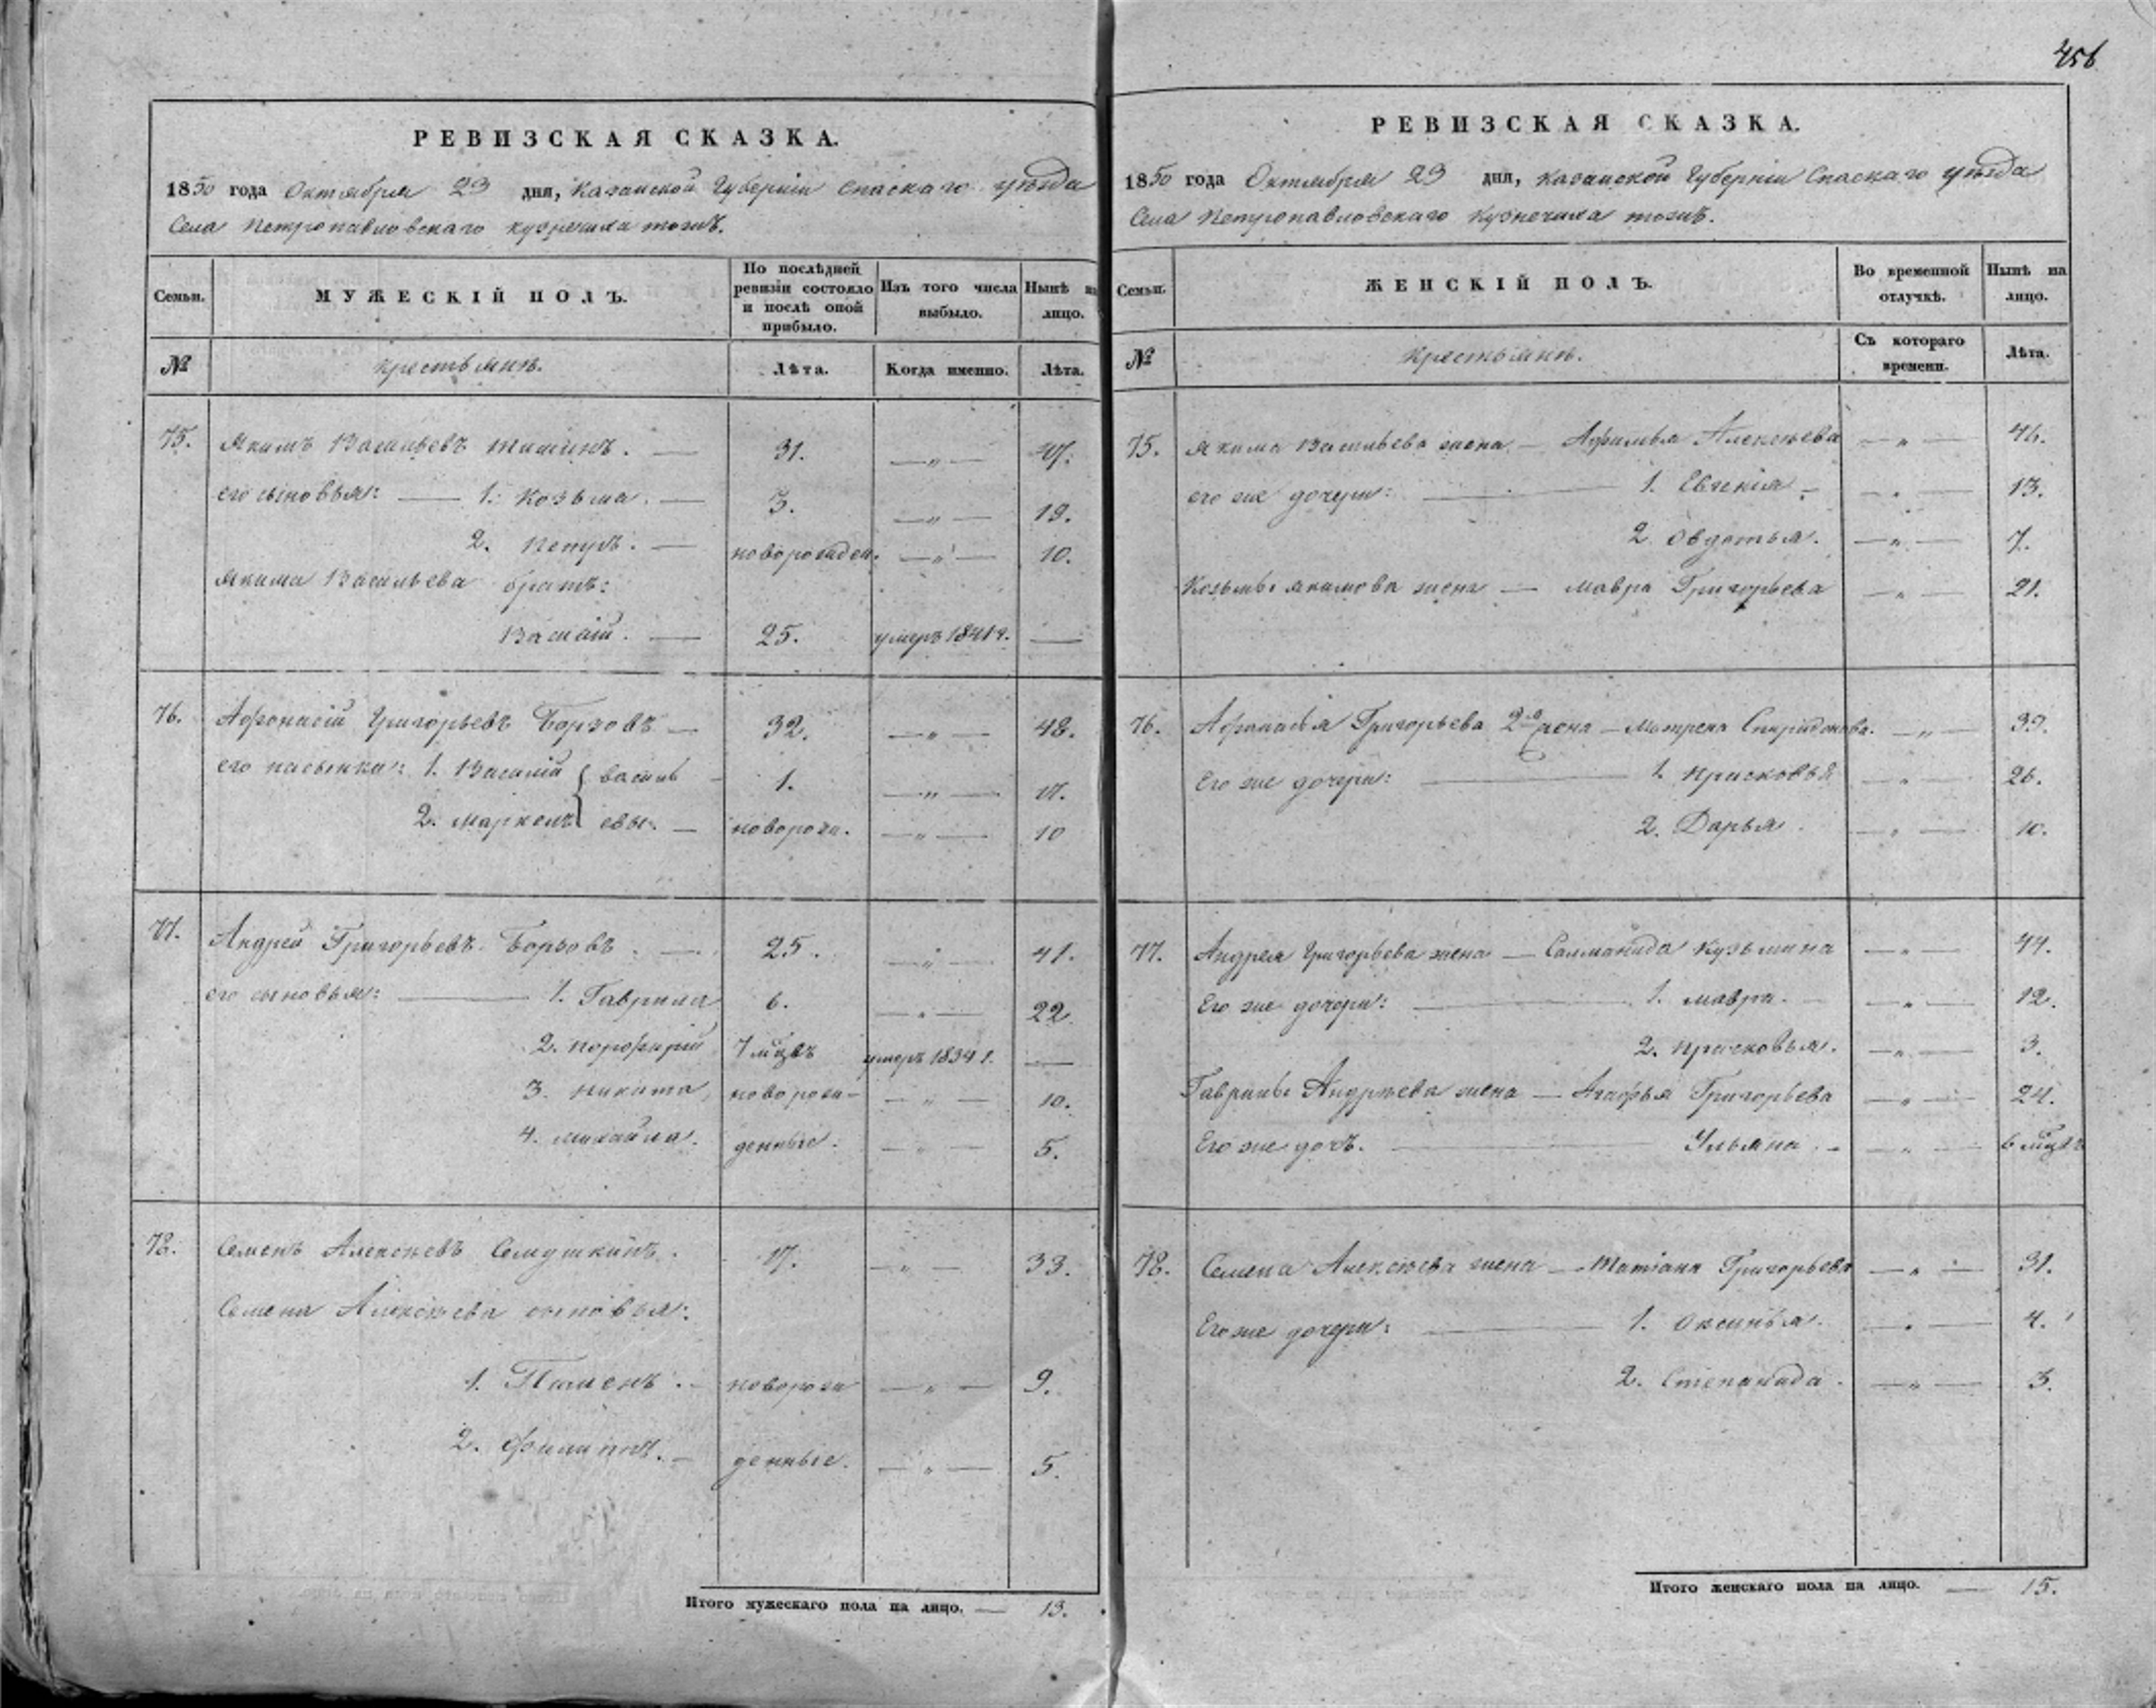 456
РЕВИЗСКАЯ СКАЗКА.
1850 года Октября 23 дня, Казанской Губерніи Спаскаго уѣзда
Села Петропавловскаго Кузнечиха тожъ.
Семьи. МУЖЕСКІЙ ПОЛЪ. По послѣдней ревизіи состояло и послѣ оной прибыло. Изъ того числа выбыло. Нынѣ на лицо.
№ Крестьянъ. Лѣта. Когда именно. Лѣта.
75. Якимъ Васильевъ 31. —„— 47.
его сыновья: — 1. Козьма. — 3. —„— 19.
2. Петръ. — новорожден. —„— 10.
Якима Васильева братъ:
Василій. — 25. умеръ 1841 г. —
76. Афонасій Григорьевъ Борзовъ — 32. —„— 48.
его пасынки: 1. Василій { василь 1. —„— 17.
2. Маркелъ евы. — новорож. —„— 10
77. Андрей Григорьевъ Борзовъ. — 25. —„— 41.
его сыновья: — 1. Гаврила 6. —„— 22.
2. Порфирій 7 мѣцъ умеръ 1834 г. —
3. Никита новорож- —„— 10.
4. Михайла. денные. —„— 5.
78. Семенъ Алексѣевъ Семушкинъ. 17. —„— 33.
Семена Алексѣева сыновья:
1. Пименъ. — новорож —„— 9.
2. Филиппъ. — денные. —„— 5.
Итого мужескаго пола на лицо. — 13.
РЕВИЗСКАЯ СКАЗКА.
1850 года Октября 23 дня, Казанской Губерніи Спаскаго уѣзда
Села Петропавловскаго Кузнечиха тожъ.
Семьи. ЖЕНСКІЙ ПОЛЪ. Во временной отлучкѣ. Нынѣ на лицо.
№ Крестьянъ. Съ котораго времени. Лѣта.
75. Якима Васильева жена — Афимья Алексѣева —„— 46.
его же дочери: — 1. Евгенія — —„— 13.
2. Овдотья. —„— 7.
Козьмы Якимова жена — Мавра Григорьева —„— 21.
76. Афанасья Григорьева 2я жена — Матрена Спиридонова. —„— 39.
Его же дочери: — 1. Прасковья —„— 26.
2. Дарья. —„— 10.
77. Андрея Григорьева жена — Саломанида Кузьмина —„— 44.
Его же дочери: — 1. Мавра. —„— 12.
2. Прасковья. —„— 3.
Гаврилы Андрѣева жена — Агафья Григорьева —„— 24.
Его же дочь. — Ульяна. —„— 6 мѣцъ
78. Семена Алексѣева жена — Татіана Григорьева —„— 31.
Его же дочери: — 1. Оксинья. —„— 4.
2. Степанида. —„— 3.
Итого женскаго пола на лицо. — 15.